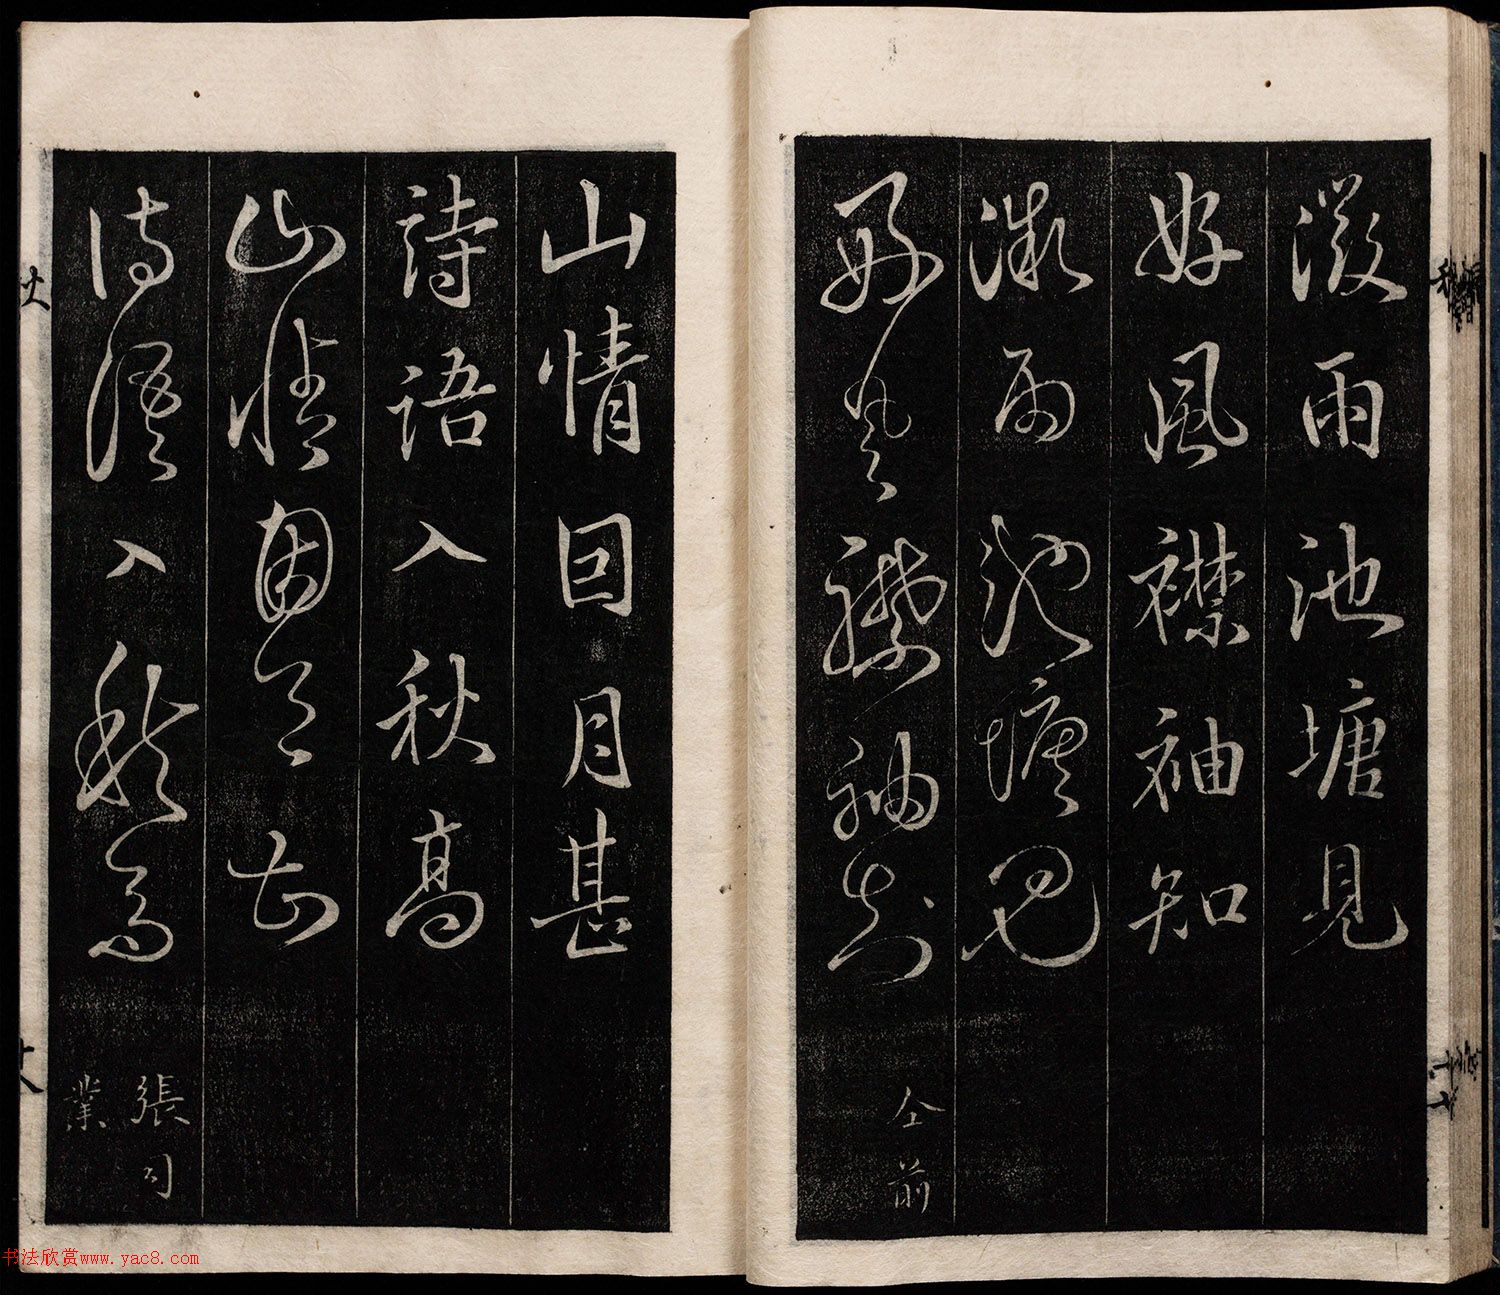 微雨池塘見
好風襟袖知
微雨池塘見
好風襟袖知
仝前
山情囙月甚
詩語入秋高
山情因月甚
詩語入秋高
張司
業
十八
书法欣赏www.yac8.com